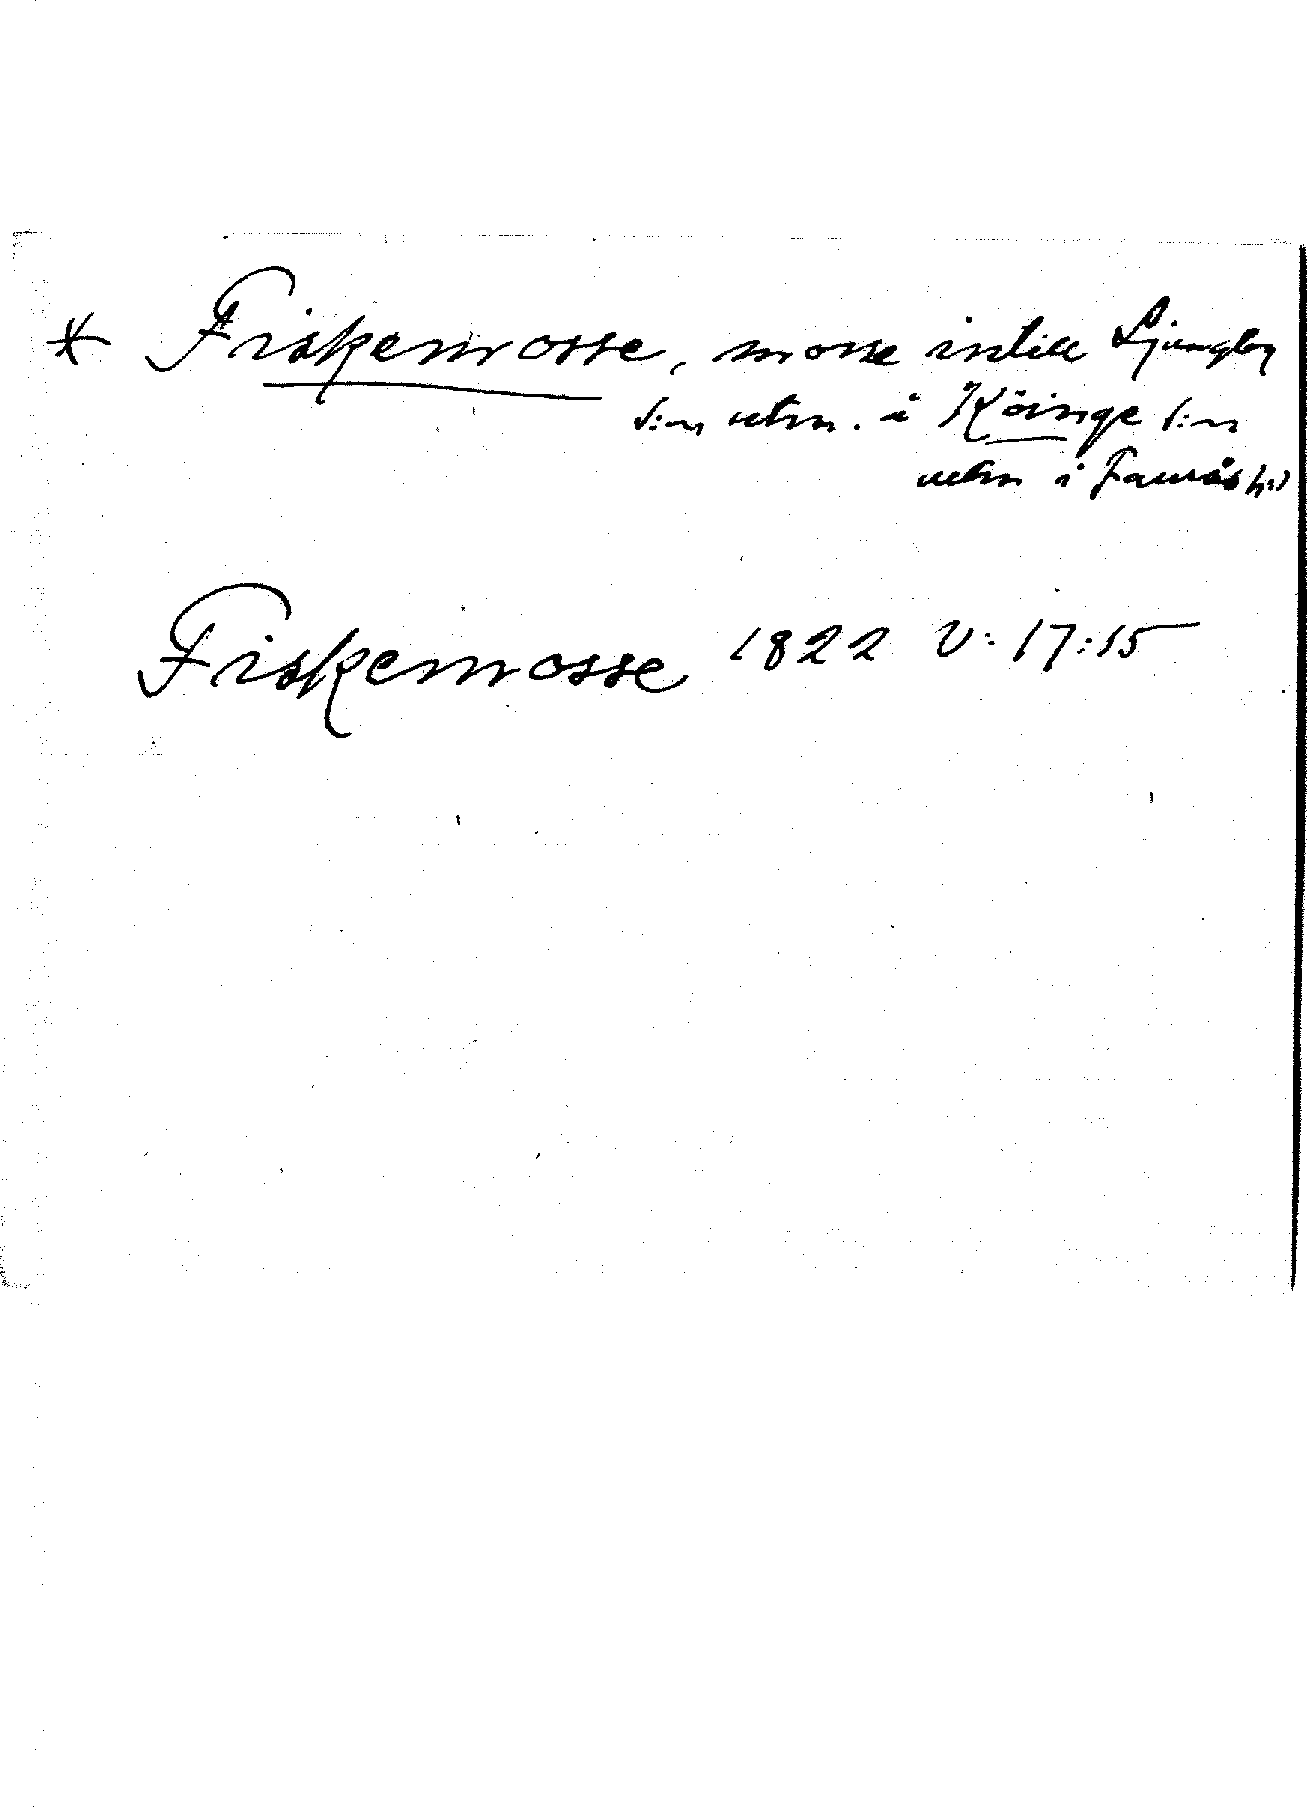 * Fiskemosse, mosse intill Ljungby
s:n utm. i Köinge s:n
utm i Faurås hd
Fiskemosse 1822 V: 17:15